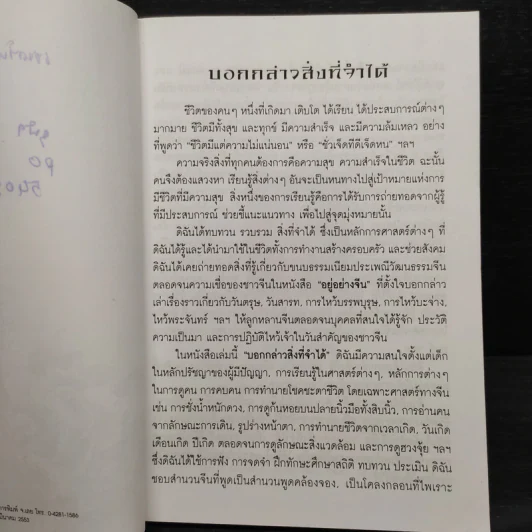 บอกกล่าวสิ่งที่จำได้
ชีวิตของคนๆ หนึ่งที่เกิดมา เติบโต ได้เรียน ได้ประสบการณ์ต่างๆ
มากมาย ชีวิตมีทั้งสุข และทุกข์ มีความสำเร็จ และมีความล้มเหลว อย่าง
ที่พูดว่า "ชีวิตมีแต่ความไม่แน่นอน" หรือ "ชั่วเจ็ดทีดีเจ็ดหน" ฯลฯ
ความจริงสิ่งที่ทุกคนต้องการคือความสุข ความสำเร็จในชีวิต ฉะนั้น
คนจึงต้องแสวงหา เรียนรู้สิ่งต่างๆ อันจะเป็นหนทางไปสู่เป้าหมายแห่งการ
มีชีวิตที่มีความสุข สิ่งหนึ่งของการเรียนรู้คือการได้รับการถ่ายทอดจากผู้รู้
ที่มีประสบการณ์ ช่วยชี้แนะแนวทาง เพื่อไปสู่จุดมุ่งหมายนั้น
ดิฉันได้ทบทวน รวบรวม สิ่งที่จำได้ ซึ่งเป็นหลักการศาสตร์ต่างๆ ที่
ดิฉันได้รู้และได้นำมาใช้ในชีวิตทั้งการทำงานสร้างครอบครัว และช่วยสังคม
ดิฉันได้เคยถ่ายทอดสิ่งที่รู้เกี่ยวกับขนบธรรมเนียมประเพณีวัฒนธรรมจีน
ตลอดจนความเชื่อของชาวจีนในหนังสือ "อยู่อย่างจีน" ที่ตั้งใจบอกกล่าว
เล่าเรื่องราวเกี่ยวกับวันตรุษ, วันสารท, การไหว้บรรพบุรุษ, การไหว้บะจ่าง,
ไหว้พระจันทร์ ฯลฯ ให้ลูกหลานจีนตลอดจนบุคคลที่สนใจได้รู้จัก ประวัติ
ความเป็นมา และการปฏิบัติไหว้เจ้าในวันสำคัญของชาวจีน
ในหนังสือเล่มนี้ "บอกกล่าวสิ่งที่จำได้" ดิฉันมีความสนใจตั้งแต่เด็ก
ในหลักปรัชญาของผู้มีปัญญา, การเรียนรู้ในศาสตร์ต่างๆ, หลักการต่างๆ
ในการดูคน การคบคน การทำนายโชคชะตาชีวิต โดยเฉพาะศาสตร์ทางจีน
เช่น การชั่งน้ำหนักดวง, การดูก้นหอยบนปลายนิ้วมือทั้งสิบนิ้ว, การอ่านคน
จากลักษณะการเดิน, รูปร่างหน้าตา, การทำนายชีวิตจากเวลาเกิด, วันเกิด
เดือนเกิด ปีเกิด ตลอดจนการดูลักษณะสิ่งแวดล้อม และการดูฮวงจุ้ย ฯลฯ
ซึ่งดิฉันได้ใช้การฟัง การจดจำ ฝึกทักษะศึกษาสถิติ ทบทวน ประเมิน ดิฉัน
ชอบสำนวนจีนที่พูดเป็นสำนวนพูดคล้องจอง, เป็นโคลงกลอนที่ไพเราะ
การพิมพ์ จ.เลย โทร. 0-4281-1086